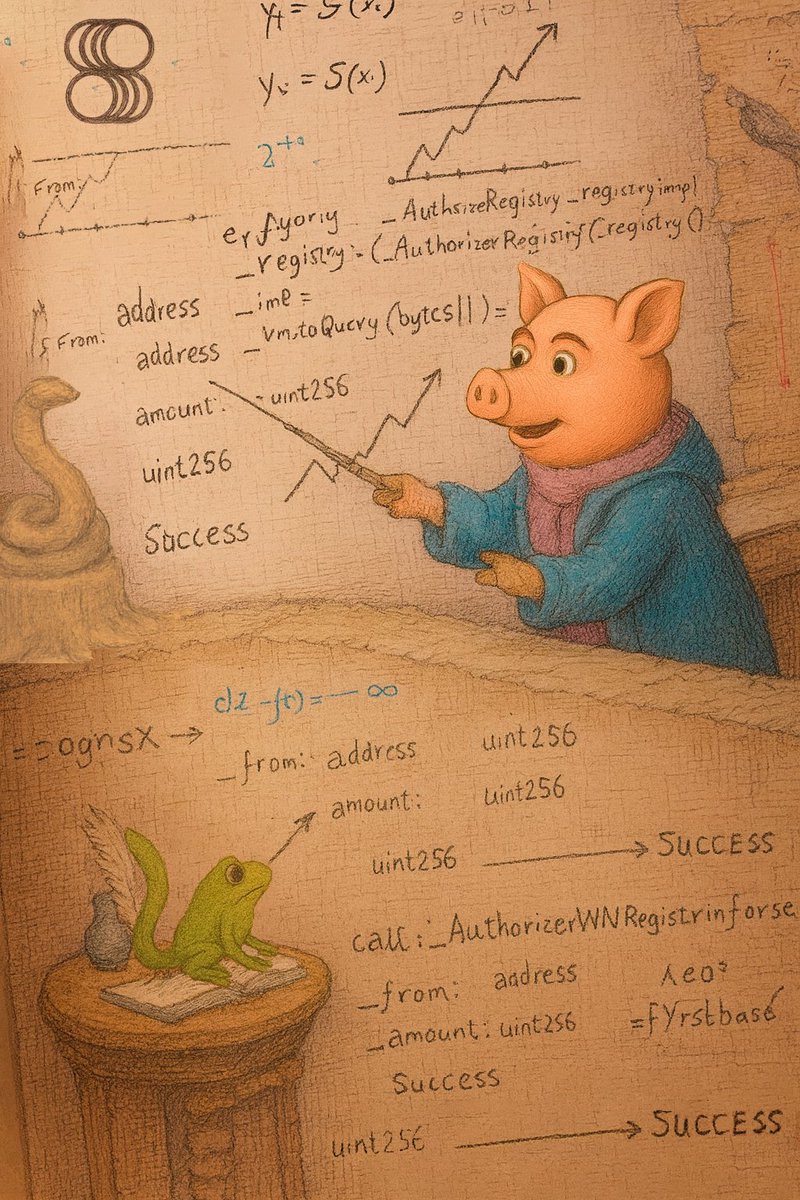 y = S(x.)
From:
2
_AuthsizeRegistry _registryimpl
_registry:-(_AuthorizerRegistry(_registry()
address _ime =
From:
_vm.toQuery (bytes||)=
address
amount: - uint256
uint256
Success
dz -f(t) = — ∞
_from: address uint256
amount: uint256
uint256 → SUCCESS
call:_AuthorizerWNRegistrinforse
_from: address
_amount: uint256 =fYrstbase
Success
uint256 → SUCCESS